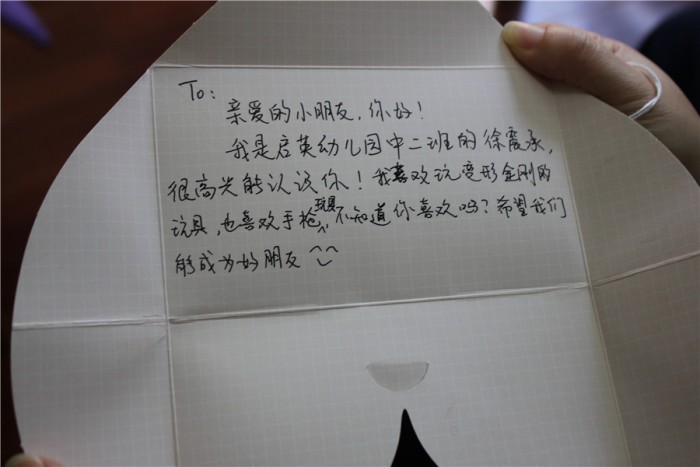 To:
亲爱的小朋友，你好！
我是启英幼儿园中二班的徐震承，
很高兴能认识你！我喜欢玩变形金刚的
玩具，也喜欢手枪玩具，不知道你喜欢吗？希望我们
能成为好朋友